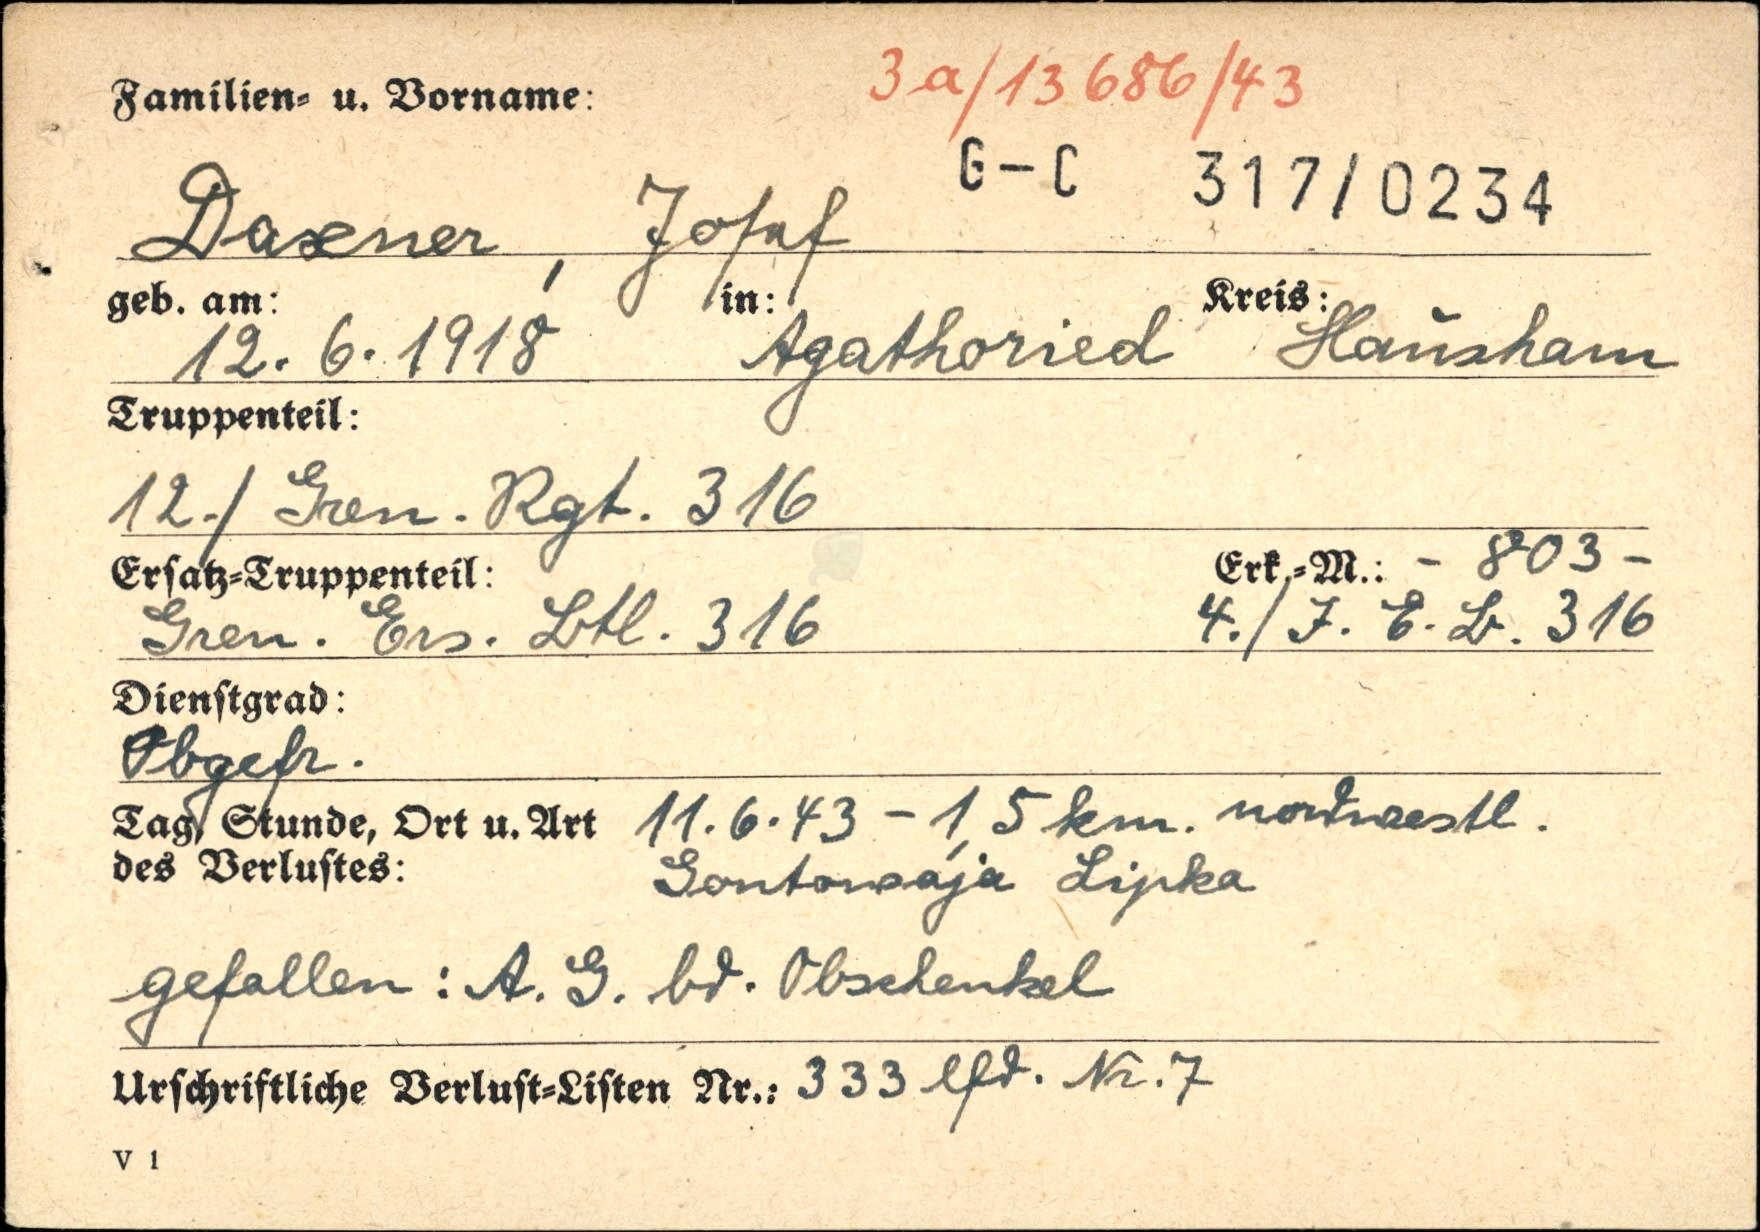 3a/13686/43
Familien- u. Vorname:
G-C 317/0234
Daxner, Josef
geb. am: in: Kreis:
12. 6. 1918 Agathoried Hausham
Truppenteil:
12./ Gren. Rgt. 316
Ersatz-Truppenteil: Erk.-M.: - 803 -
Gren. Ers. Btl. 316 4./ I. E. B. 316
Dienstgrad:
Obgefr.
Tag, Stunde, Ort u. Art 11.6.43 - 1,5 km. nordwestl.
des Verlustes: Gontowaja Lipka
gefallen: A. G. bd. Obschenkel
Urschriftliche Verlust-Listen Nr.: 333 lfd. Nr. 7
V 1